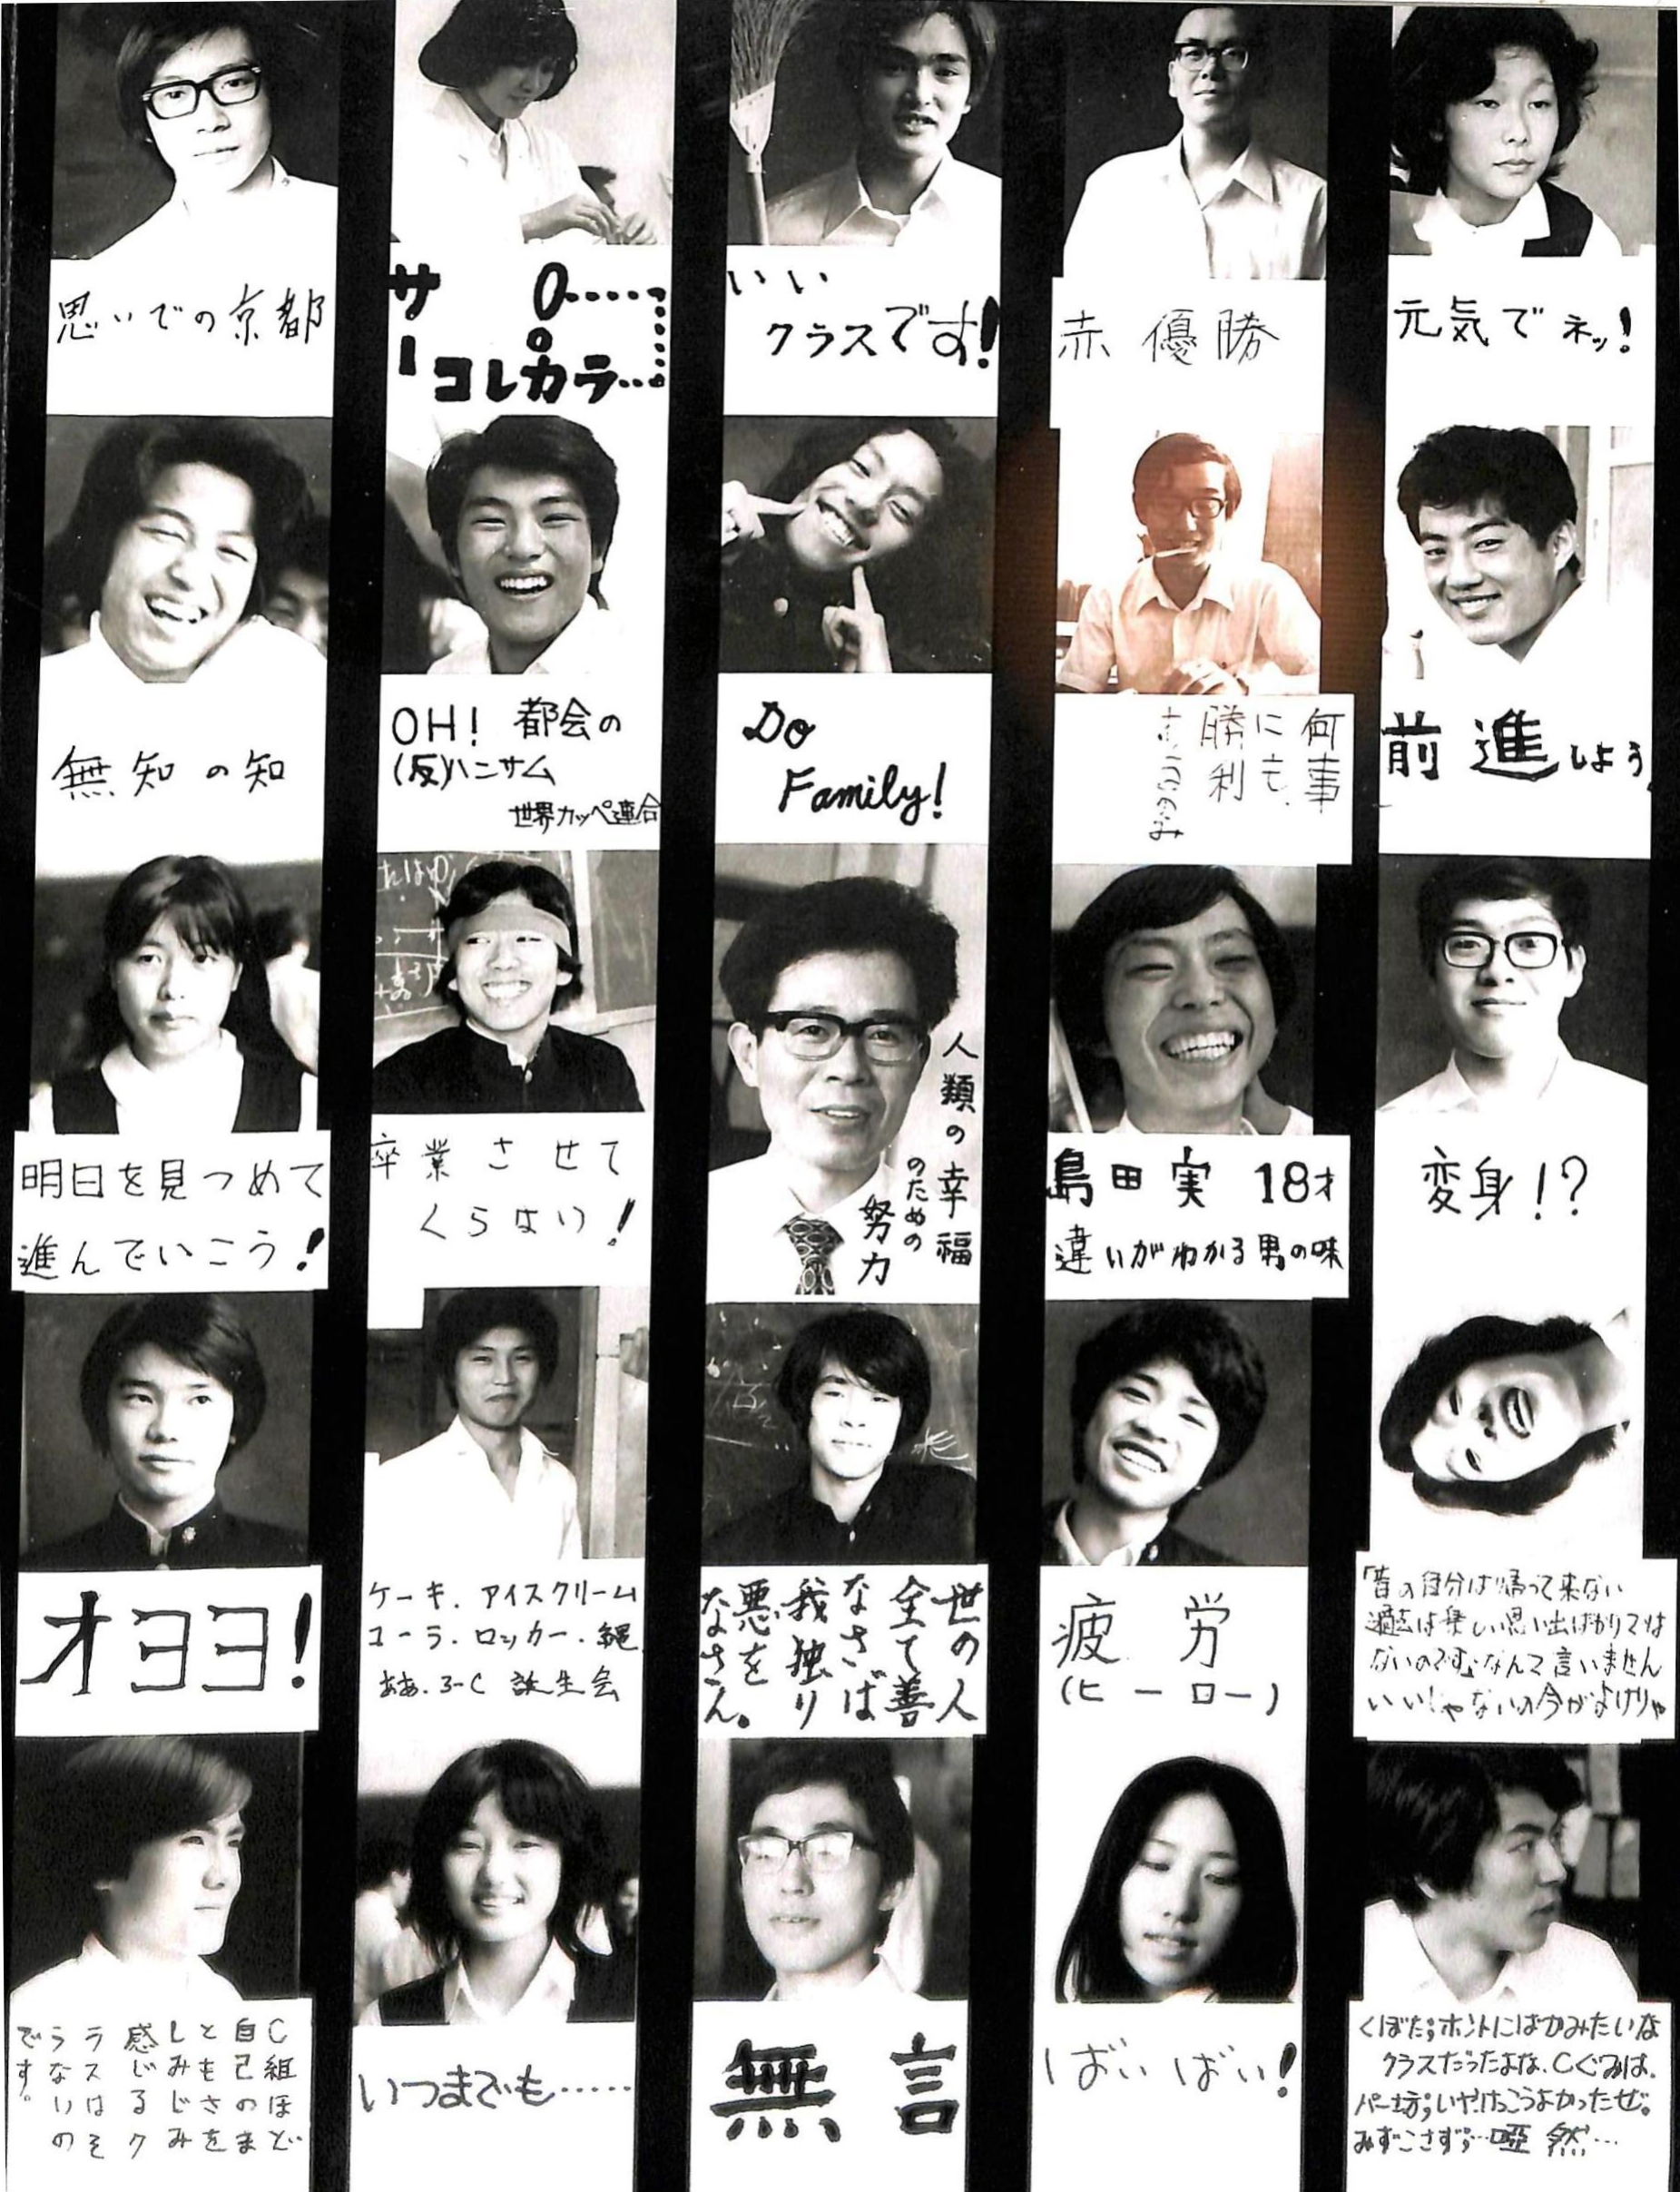 思いでの京都
サ
ー コレカラ…
いい
クラスです!
赤優勝
元気でネッ!
無知の知
OH! 都会の
(反)ハンサム
世界カッペ連合
Do
Family!
何事
にも
勝利
前進しよう
明日を見つめて
進んでいこう!
卒業させて
くらはい!
人類の幸福
のための
努力
島田実 18才
違いがわかる男の味
変身!?
オヨヨ!
ケーキ.アイスクリーム
コーラ.ロッカー.縄
ああ.3-C 誕生会
世の人
全て善
なさば
我独り
悪を
なさん。
疲労
(ヒーロー)
「昔の自分は帰って来ない
過去は楽しい思い出ばかりでは
ないのです」なんて言いません
いいじゃないの今がよけりゃ
C組ほど
自己のま
ともさを
しみじみ
感じるク
ラスはそ
うないの
です。
いつまでも……
無言
ばいばい!
くぼた;ホントにばかみたいな
クラスだったよな.Cぐみは.
パー坊;いやけっこうよかったぜ。
みずこさず;…唖然…